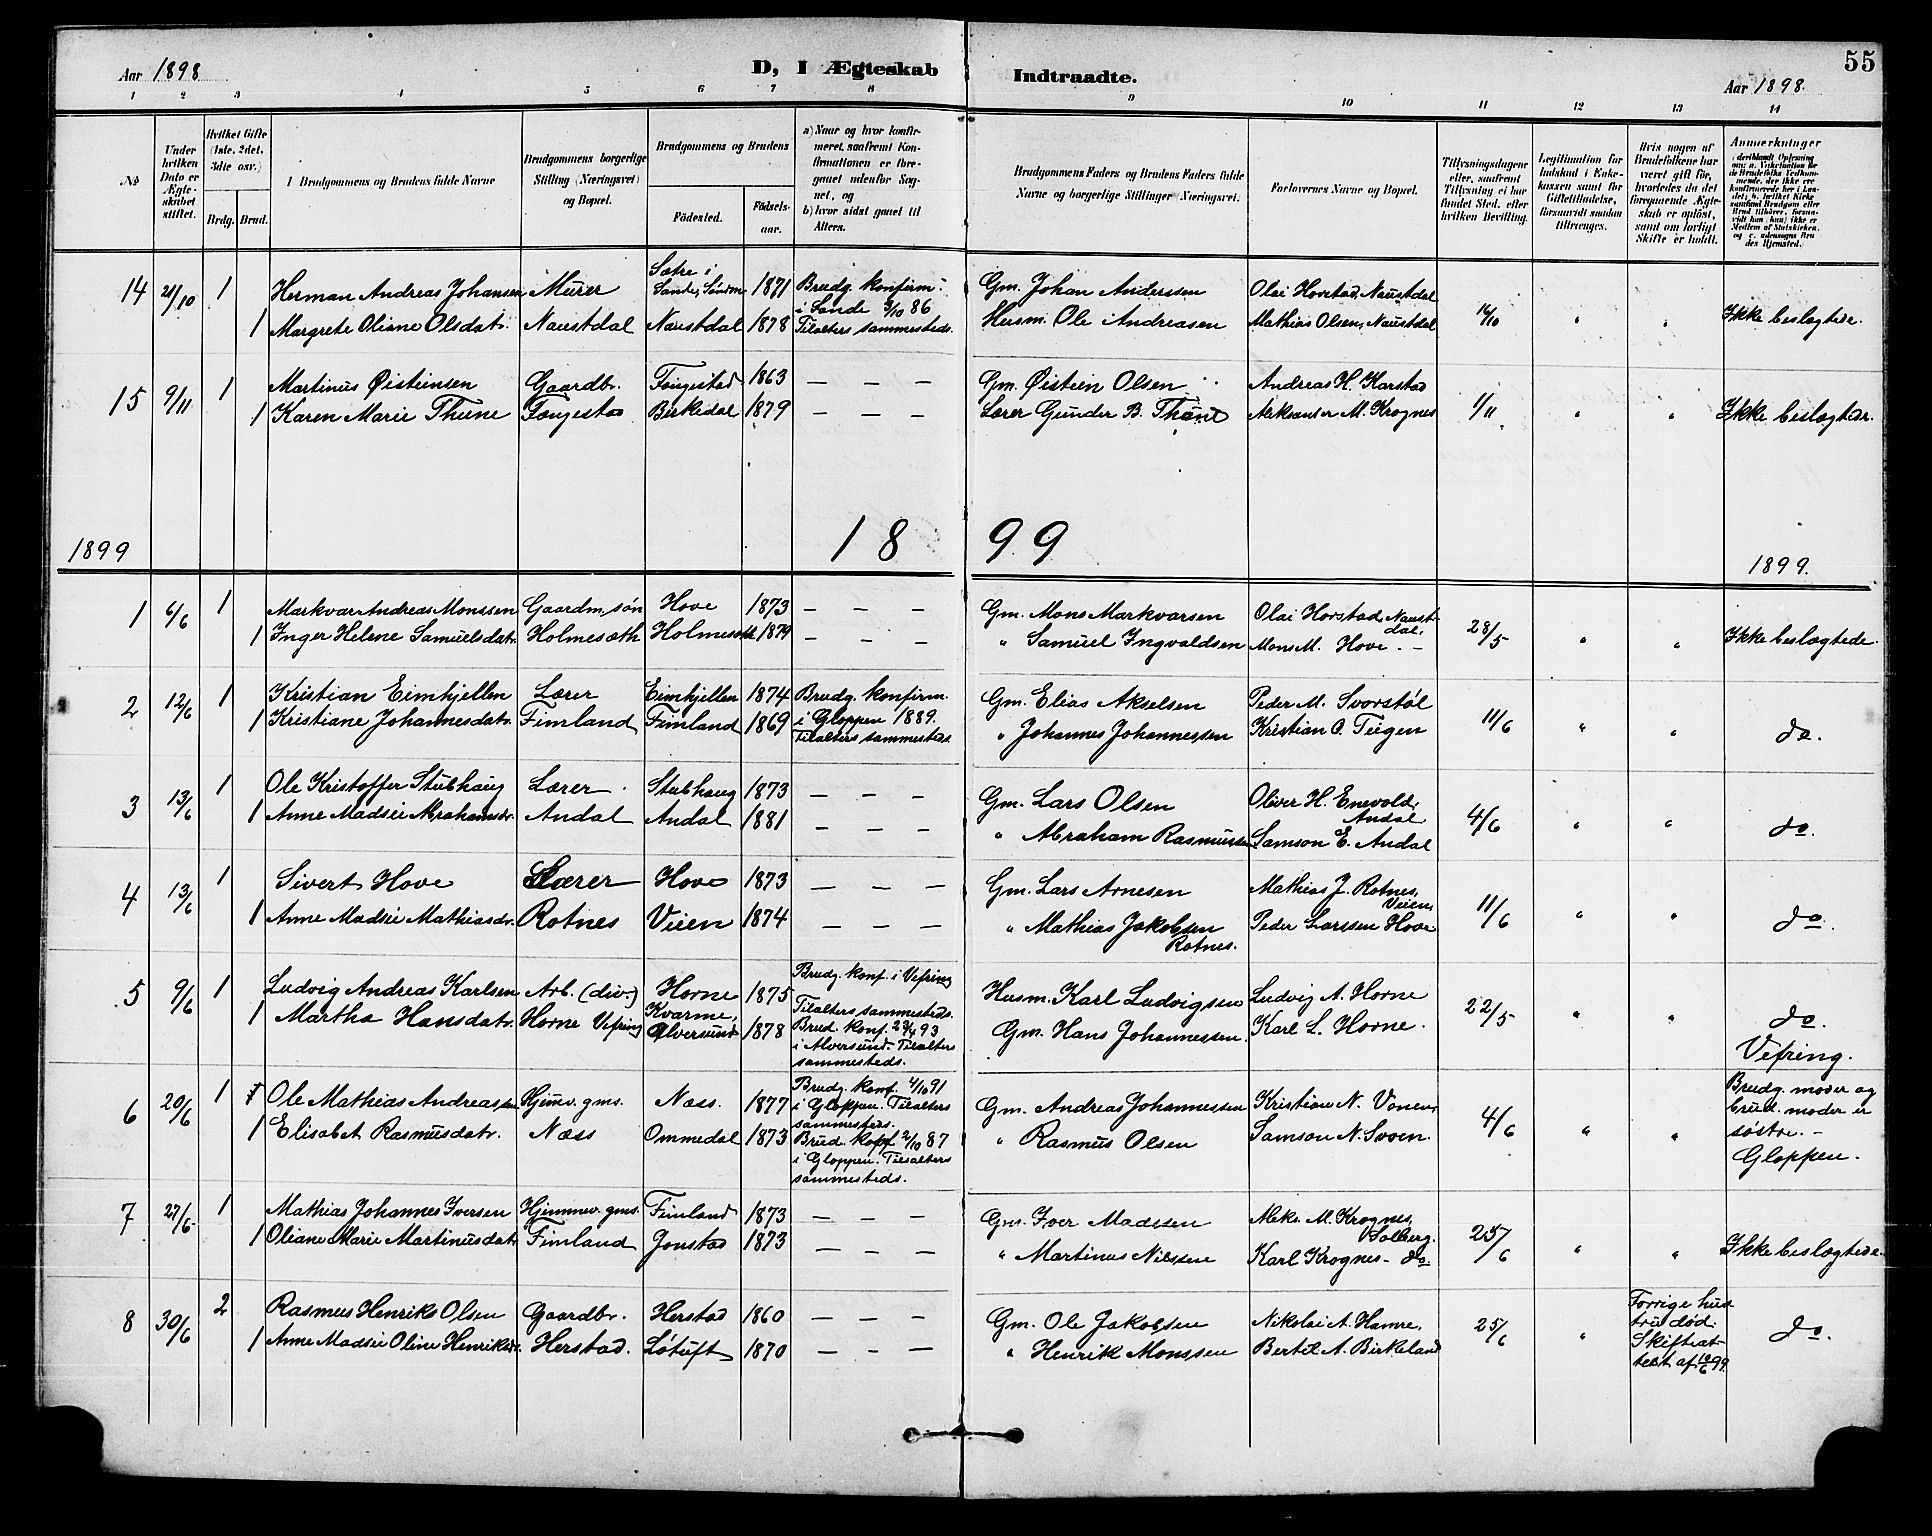 55
Aar 1898
D, I Ægteskab Indtraadte.
Aar 1898.
1 2 3 4 5 6 7 8 9 10 11 12 13 14
No
Under hvilken Dato er Ægteskabet stiftet.
Hvilket Gifte (1ste, 2det, 3die osv.)
Brdg. Brud.
Brudgommens og Brudens fulde Navne
Brudgommens borgerlige Stilling (Næringsvei) og Bopæl.
Brudgommens og Brudens
Fødested.
Fødselsaar.
a) Naar og hvor konfirmeret, saafremt Konfirmationen er foregaaet udenfor Sognet, og
b) hvor sidst gaaet til Alters.
Brudgommens Faders og Brudens Faders fulde Navne og borgerlige Stillinger (Næringsvei.
Forlovernes Navne og Bopæl.
Tillysningsdagene eller, saafremt Tillysning ei har fundet Sted, efter hvilken Bevilling.
Legitimation for Indskud i Enkekassen samt for Giftetilladelse, forsaavidt saadan tiltrænges.
Hvis nogen af Brudefolkene har været gift før, hvorledes da det foregaaende Ægteskab er opløst, samt om lovligt Skifte er holdt.
Anmærkninger
14 21/10 1 Herman Andreas Johansen Murer Sætre i Sande, Søndm. 1871 Brudg. konfirm. i Sande 3/10 86 Gm. Johan Anderssen Olai Horstad, Naustdal
1 Margrete Oliane Olsdatr. Naustdal Naustdal 1878 Tilalters sammesteds. Husm. Ole Andreasen Mathias Olsen, Naustdal 16/10 " " Ikke beslægtede.
15 9/11 1 Martinus Øisteinsen Gaardbr. Fougestad 1863 — — — Gm. Øistein Olsen Andreas H. Karstad
1 Karen Marie Thune Fougestad Birkedal 1879 — — — Lærer Gunder B. Thune Aleksander M. Krognes 1/11 " " Ikke beslægtede.
1899 18 99 1899.
1 6/6 1 Markvar Andreas Monssen Gaardm. søn Hove 1873 — — — Gm. Mons Markvarsen Olai Horstad, Naustdal,
1 Inger Helene Samuelsdatr. Holmesæth Holmesæth 1879 — — — " Samuel Ingvaldsen Mons M. Hove - — 28/5 " " Ikke beslægtede.
2 12/6 1 Kristian Eimhjellen Lærer Eimhjellen 1874 Brudg. konfirm. i Gloppen 1889. Gm. Elias Akselsen Peder M. Svorstøl
1 Kristiane Johannesdatr. Fimland Fimland 1869 Tilalters sammesteds. " Johannes Johannessen Kristian O. Teigen 11/6 " " do.
3 13/6 1 Ole Kristoffer Stubhaug Lærer Stubhaug 1873 — — — Gm. Lars Olsen Oliver H. Enevold, Andal
1 Anne Madsie Abrahamsdr. Andal Andal 1881 — — — " Abraham Rasmussen Samson E. Andal 4/6 " " do.
4 13/6 1 Sivert Hove Lærer Hove 1873 — — — Gm. Lars Arnesen Mathias J. Rotnes, Veien,
1 Anne Madsie Mathiasdr. Rotnes Veien 1874 — — — " Mathias Jakobsen Rotnes. Peder Larssen Hove 11/6 " " do.
5 9/6 1 Ludvig Andreas Karlsen Arb. (div.) Horne 1875 Brudg. konf. i Vefring Tilalters sammesteds. Husm. Karl Ludvigsen Ludvig A. Horne
1 Martha Hansdatr. Horne Vefring Kvarme, Alversund 1878 Brud. konf. 23/4 93 i Alversund. Tilalters sammesteds. Gm. Hans Johannessen. Karl L. Horne. 22/5 " " do. Vefring.
6 20/6 1 Ole Mathias Andreassen Hjemv. gms. Næss. 1877 Brudg. konf. 4/10 91 i Gloppen. Tilalters sammesteds. Gm. Andreas Johannessen Kristian N. Vonen,
1 Elisabet Rasmusdatr. Næss Ommedal 1873 Brud. konf. 2/10 87 i Gloppen. Tilalters sammesteds. " Rasmus Olsen Samson N. Svoen. 4/6 " " Brudg. moder og brud. moder er søstre. — Gloppen.
7 27/6 1 Mathias Johannes Iversen Hjemmev. gms. Fimland 1873 — — — Gm. Iver Madssen Aleks. M. Krognes, Solberg.
1 Oliane Marie Martinusdatr. Fimland Jonstad 1873 — — — " Martinus Nilssen Karl Krognes - do. 25/6 " " Ikke beslægtede.
8 30/6 2 Rasmus Henrik Olsen Gaardbr. Herstad 1860 — — — Gm. Ole Jakobsen Nikolai A. Hamre,
1 Anne Madsie Oline Henriksdr. Herstad. Løtuft 1870 — — — " Henrik Monssen Bertel A. Birkeland 25/6 " Forrige hustru død. Skifteattest af 10/6 99. do.